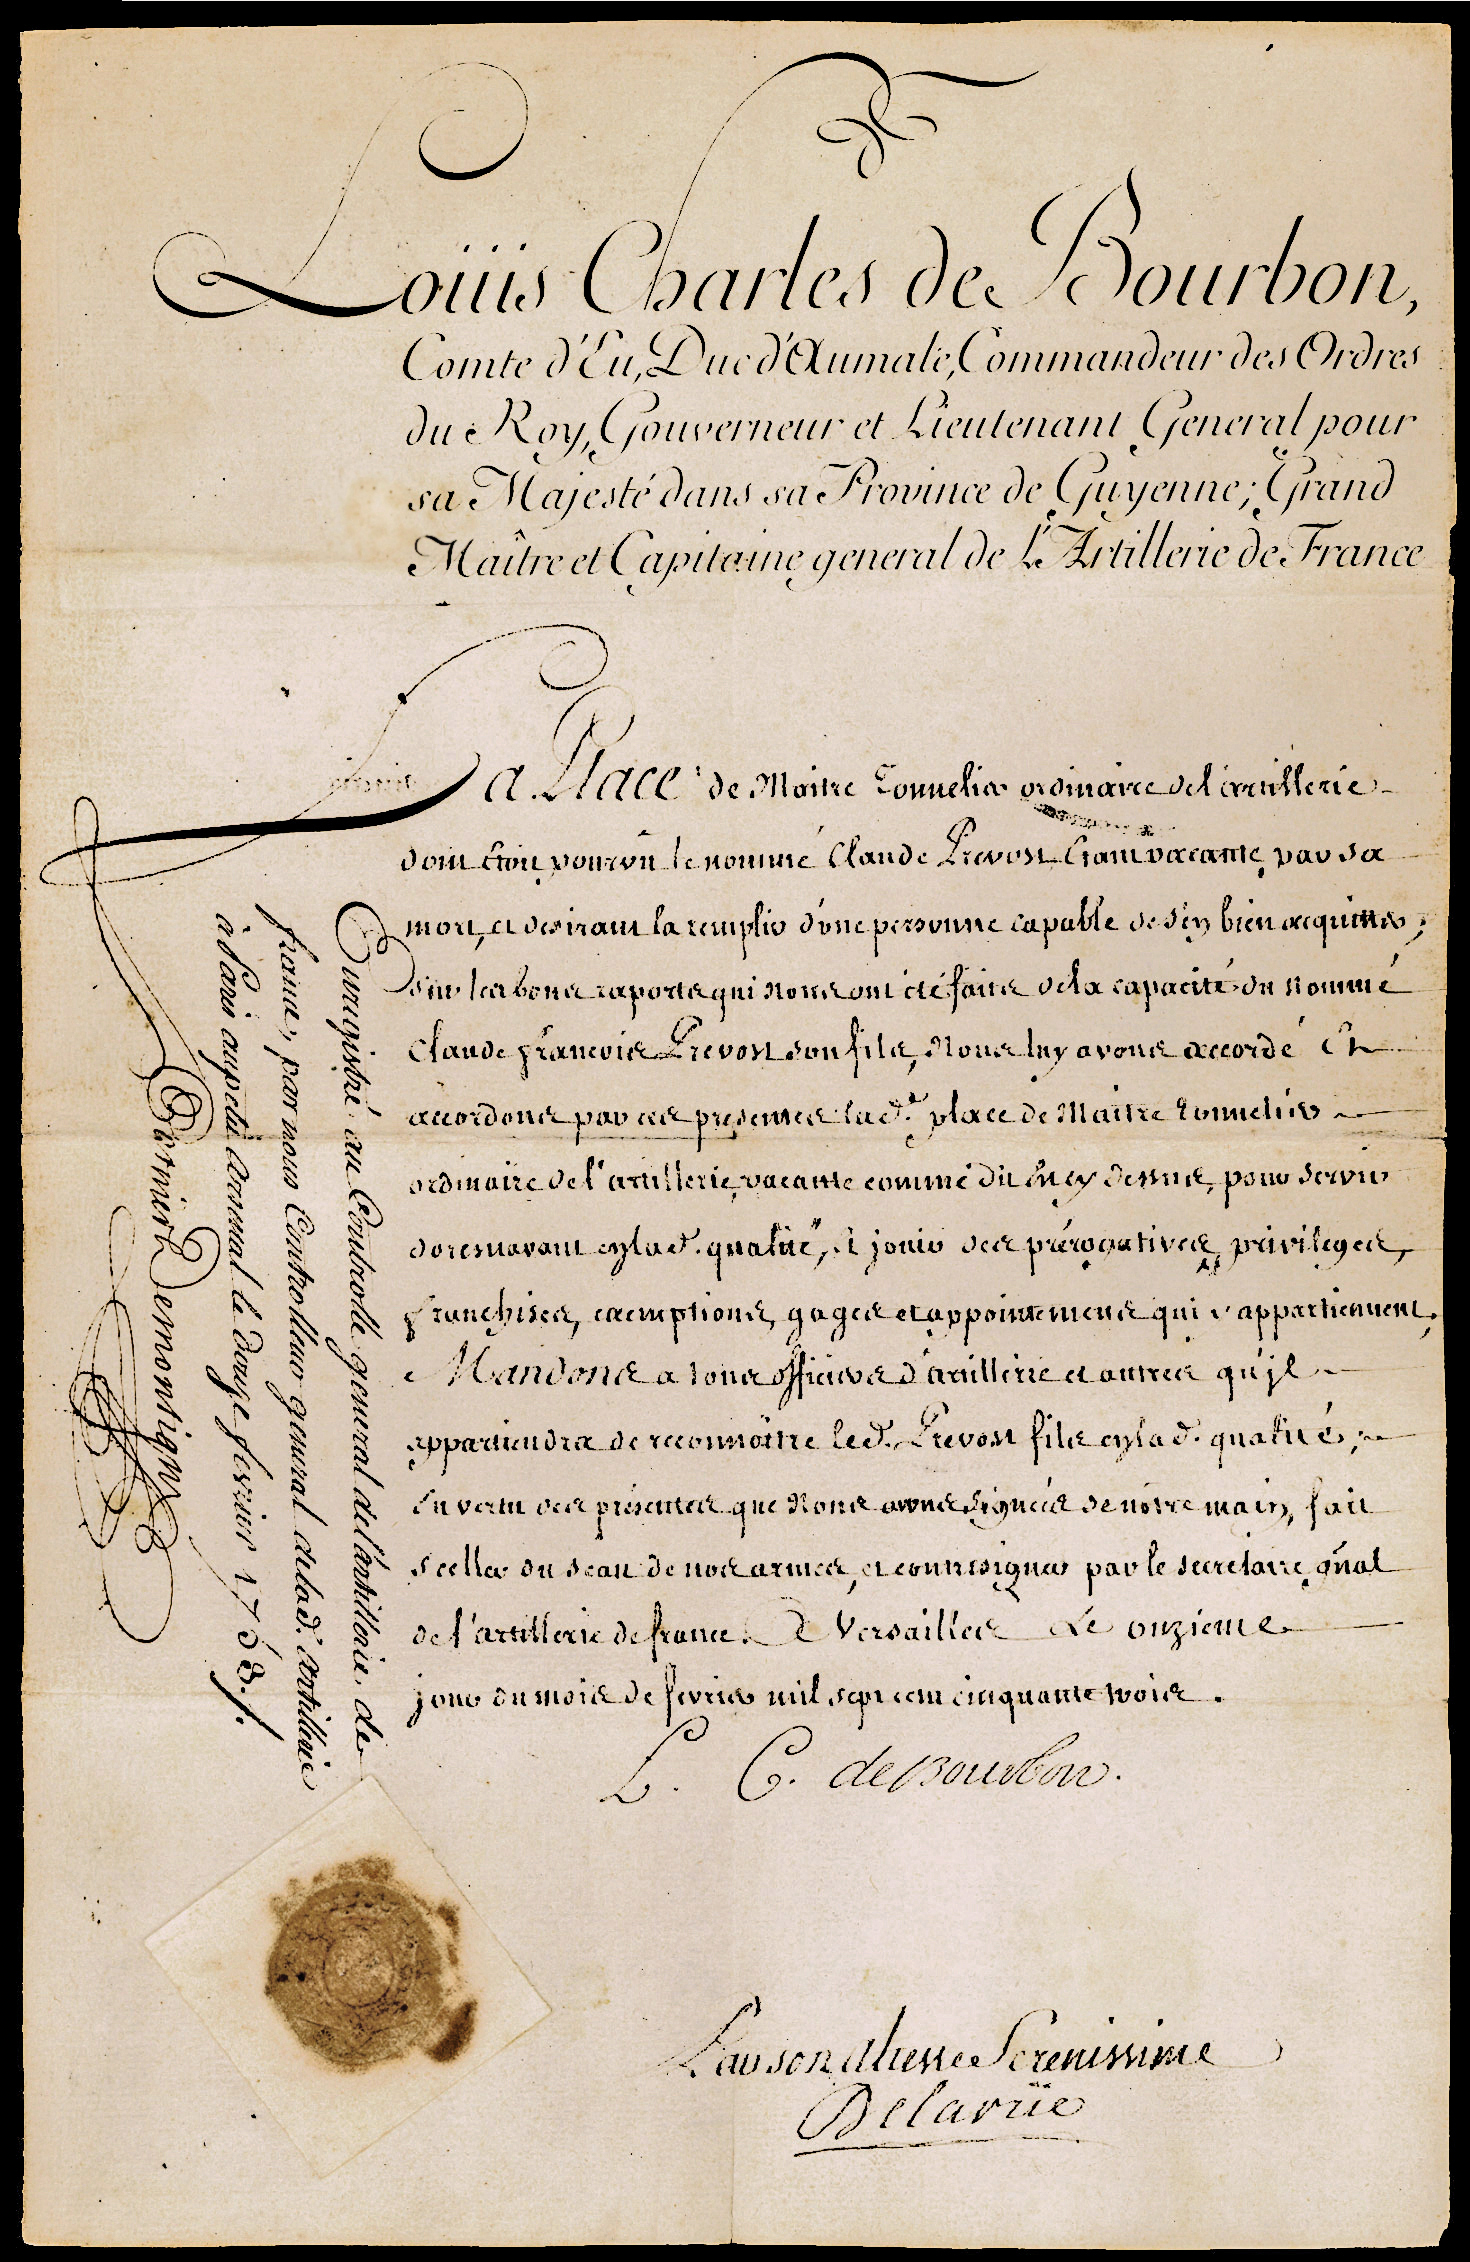 Loüis Charles de Bourbon,
Comte d'Eu, Duc d'Aumale, Commandeur des Ordres
du Roy, Gouverneur et Lieutenant General pour
sa Majesté dans sa Province de Guyenne; Grand
Maître et Capitaine general de L'Artillerie de France
La Place de Maitre Tonnelier ordinaire de l'artillerie
dont étoit pourvû le nommé Claude Prevost Etant vacante par sa
mort, et desirant la remplir d'une personne capable de s'en bien acquitter;
Sur les bons raports qui Nous ont été faits de la capacité du nommé
Claude françois Prevost son fils, Nous luy avons accordé Et
accordons par ces presentes lad.e place de Maitre tonnelier
ordinaire de l'artillerie, vacante comme dit Est cy dessus, pour servir
doresnavant en lad. qualité, et jouir des prérogatives, privileges,
franchises, exemptions, gages et appointements qui y appartiennent.
Mandons a tous officiers d'artillerie et autres qu'jl
appartiendra de reconnoître led. Prevost fils en lad. qualité;
En vertu des présentes que Nous avons signées de nôtre main, fait
sceller du sceau de nos armes, et contresigner par le secretaire gñal
de l'artillerie de france. A Versailles Le onzieme
jour du mois de fevrier mil sept cent cinquante trois.
L. C. de Bourbon.
Par son altesse Serenissime
Delarüe
Enregistré au Controlle general de l'artillerie de
france, par nous Controlleur general de lad. artillerie
à Paris au petit Arsenal le douze fevrier 1753./.
Cotnieri Demontigny